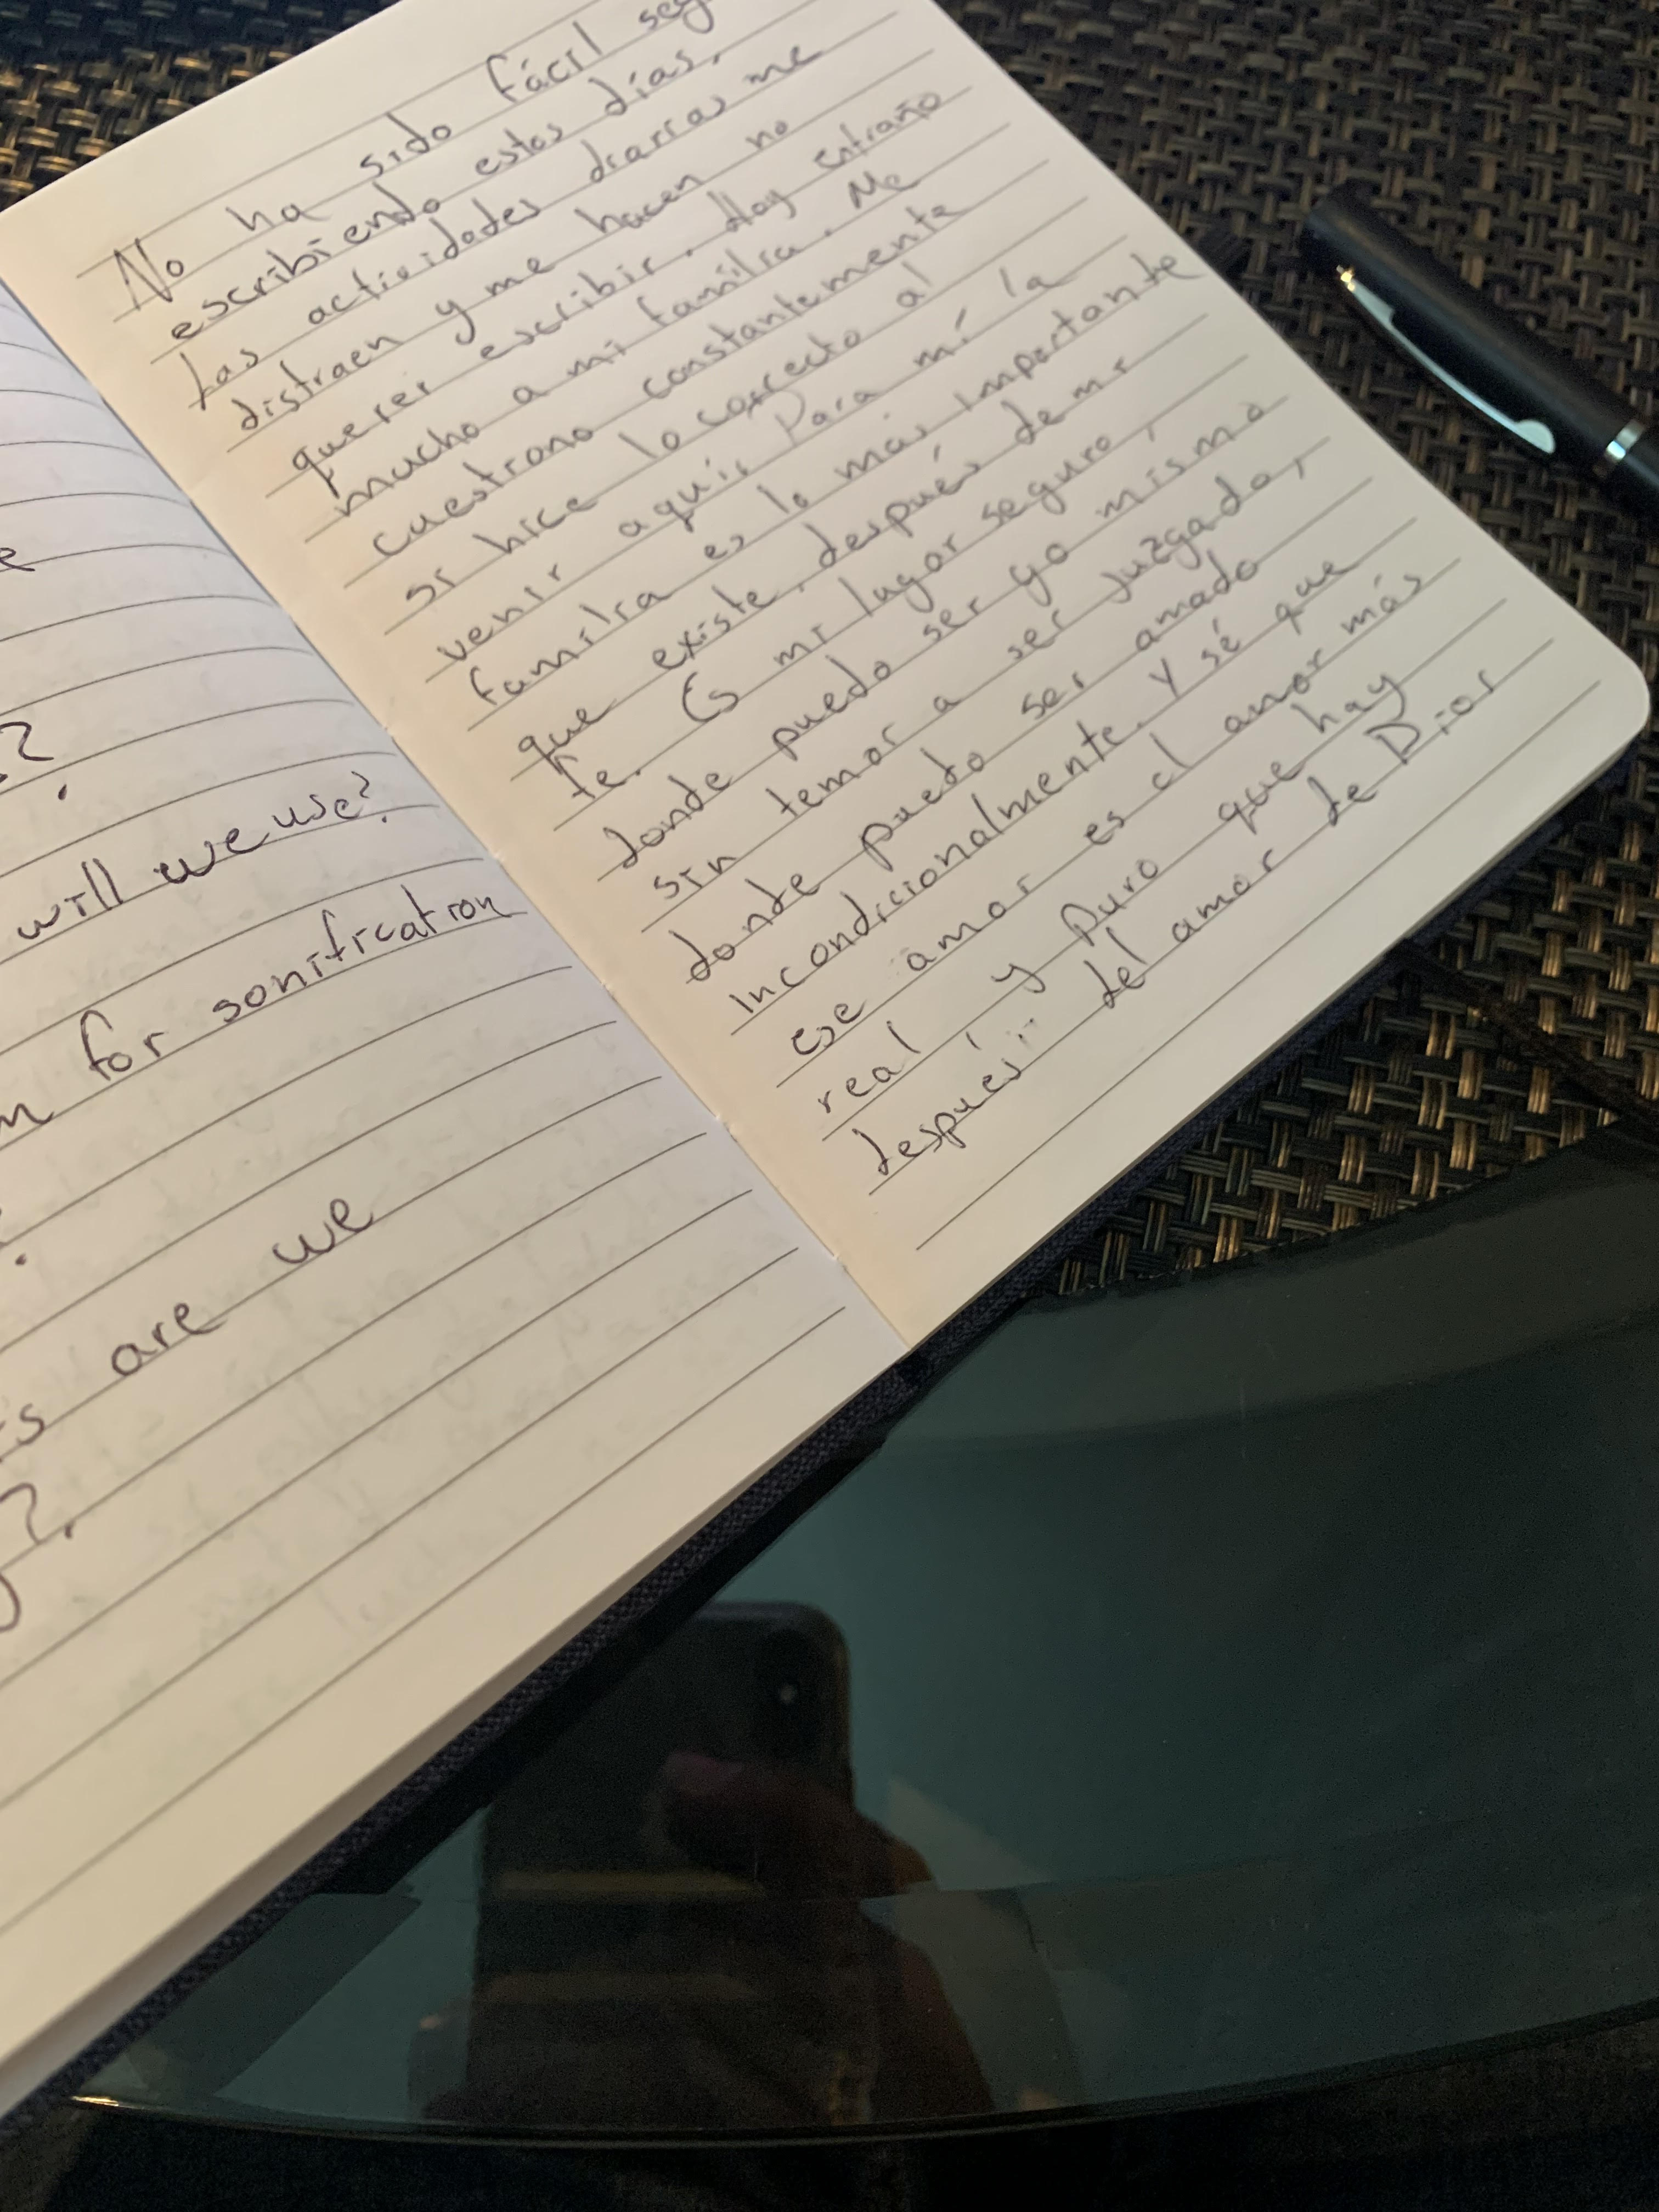 e
?
will we use?
for sonification
are we
?
No ha sido fácil seg
escribiendo estos días.
Las actividades diarias me
distraen y me hacen no
querer escribir. Hoy extraño
mucho a mi familia. Me
cuestiono constantemente
si hice lo correcto al
venir aquí. Para mí la
familia es lo más importante
que existe, después de mi
fe. Es mi lugar seguro,
donde puedo ser yo mismo
sin temor a ser juzgado,
donde puedo ser amado
incondicionalmente. Y sé que
ese amor es el amor más
real y puro que hay
después del amor de Dios